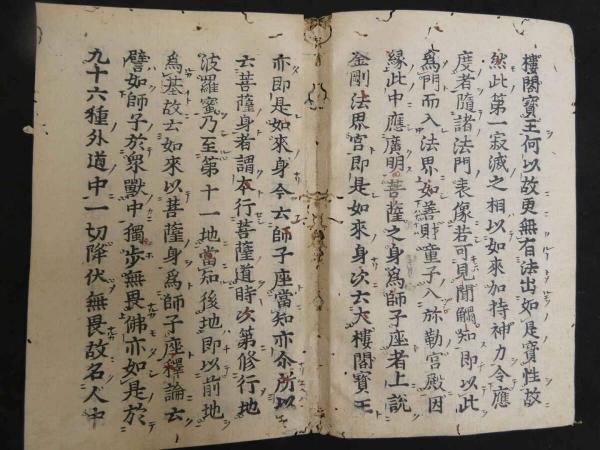 樓閣寶王何以故更無有法出如是寶性故
然此第一寂滅之相以如來加持神力令應
度者隨諸法門表像若可見聞觸知即以此
爲門而入法界如善財童子入弥勒宮殿因
緣此中應廣明菩薩之身爲師子座者上説
金剛法界宮即是如來身次云大樓閣寶王
亦即是如來身今云師子座當知亦尒所以
云菩薩身者謂本行菩薩道時次第修行地
波羅蜜乃至第十一地當知後地即以前地
爲基故云如來以菩薩身爲師子座釋論云
譬如師子於衆獸中獨步無畏佛亦如是於
九十六種外道中一切降伏無畏故名人中